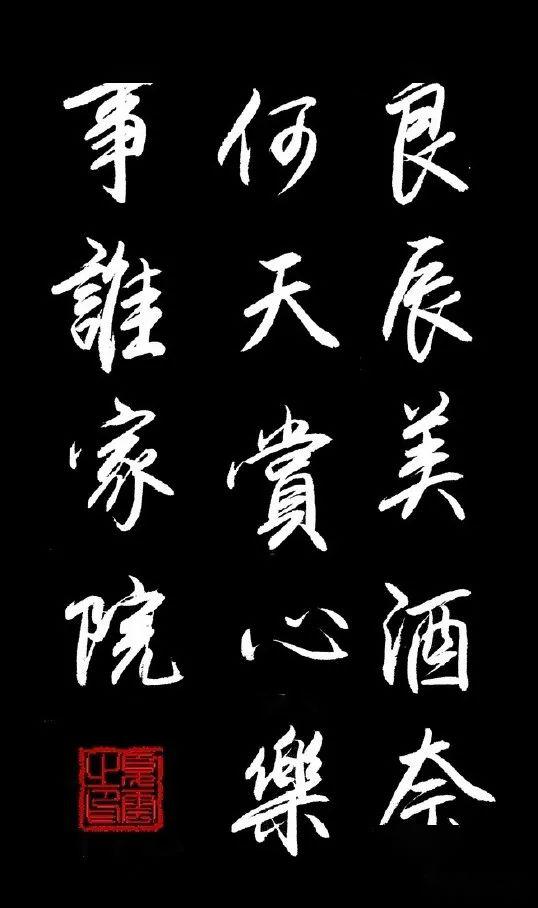 良辰美酒奈
何天賞心樂
事誰家院